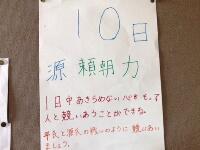 10日
源 頼朝 力
1日中あきらめない心をもって
人と競いあうことができる。
平氏と源氏の戦いのように 競いあい
ましょう。